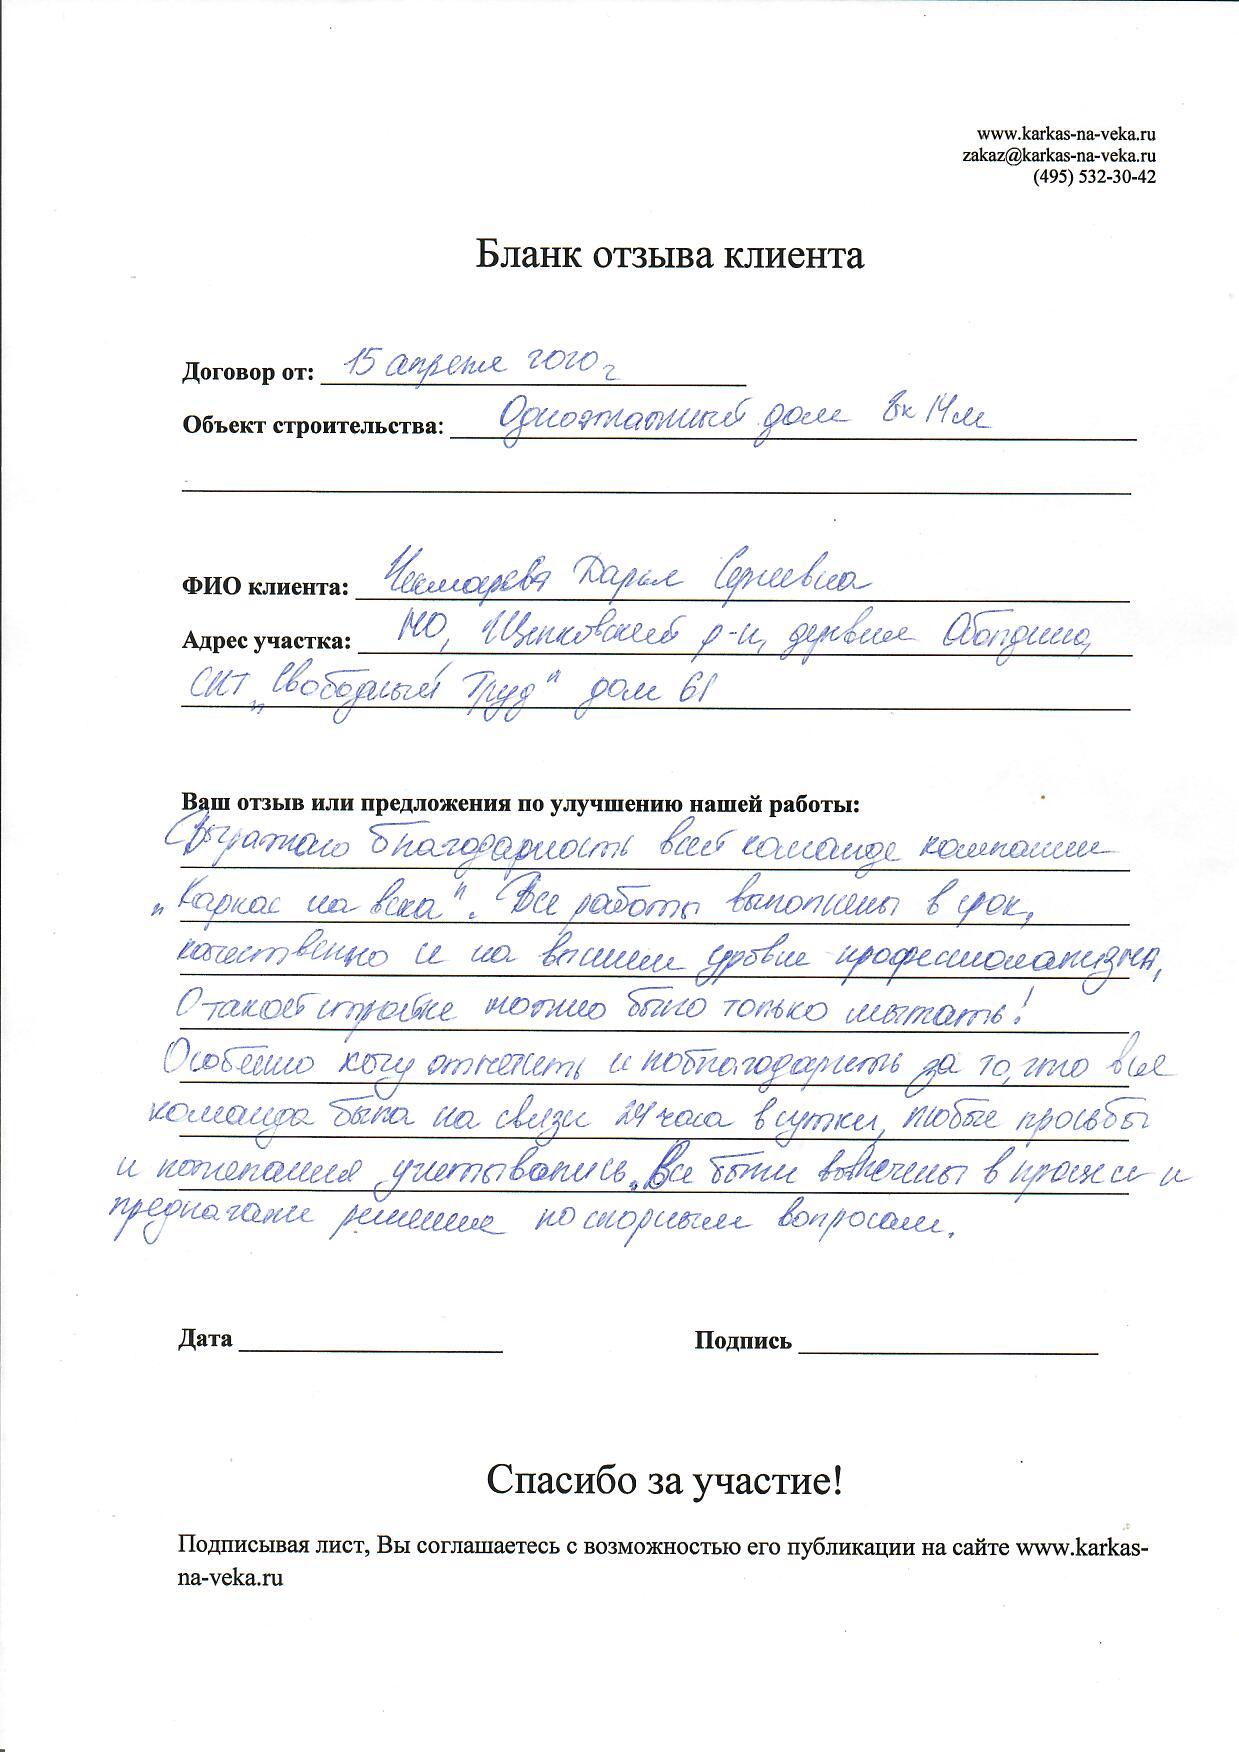 www.karkas-na-veka.ru
zakaz@karkas-na-veka.ru
(495) 532-30-42
Бланк отзыва клиента
Договор от: 15 апреля 2020 г
Объект строительства: Одноэтажный дом 8х14м
ФИО клиента: Дарья Сергеевна
Адрес участка: МО, Щелковский р-н, деревня
СНТ „Свободный Труд" дом 61
Ваш отзыв или предложения по улучшению нашей работы:
Выражаю благодарность всей команде компании
„Каркас на века". Все работы выполнены в срок,
качественно и на высшем уровне профессионализма,
О такой стройке можно было только мечтать!
Особенно хочу отметить и поблагодарить за то, что вся
команда была на связи 24 часа в сутки, любые просьбы
и пожелания учитывались. Все были вовлечены в процесс и
предлагали решение по спорным вопросам.
Дата Подпись
Спасибо за участие!
Подписывая лист, Вы соглашаетесь с возможностью его публикации на сайте www.karkas-
na-veka.ru